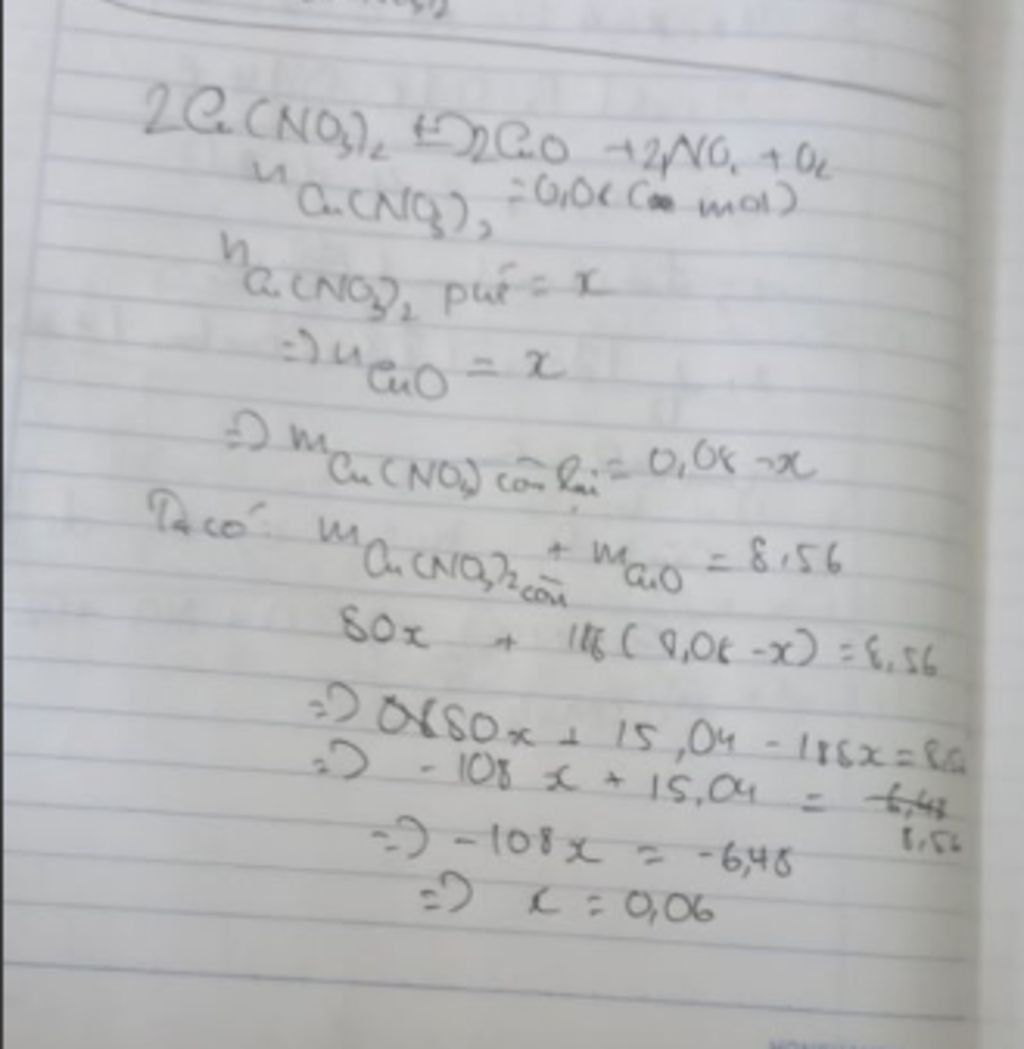 2Cu(NO3)2 ⇌ 2CuO + 2NO2 + O2
n Cu(NO3)2 = 0,08 (mol)
n Cu(NO3)2 pứ = x
=> n CuO = x
=> m Cu(NO3) còn lại = 0,08 - x
Ta có: m Cu(NO3)2 còn + m CuO = 8,56
80x + 188(0,08 - x) = 8,56
=> 80x + 15,04 - 188x = 8,56
=> -108x + 15,04 = 6,48
8,56
=> -108x = -6,48
=> x = 0,06